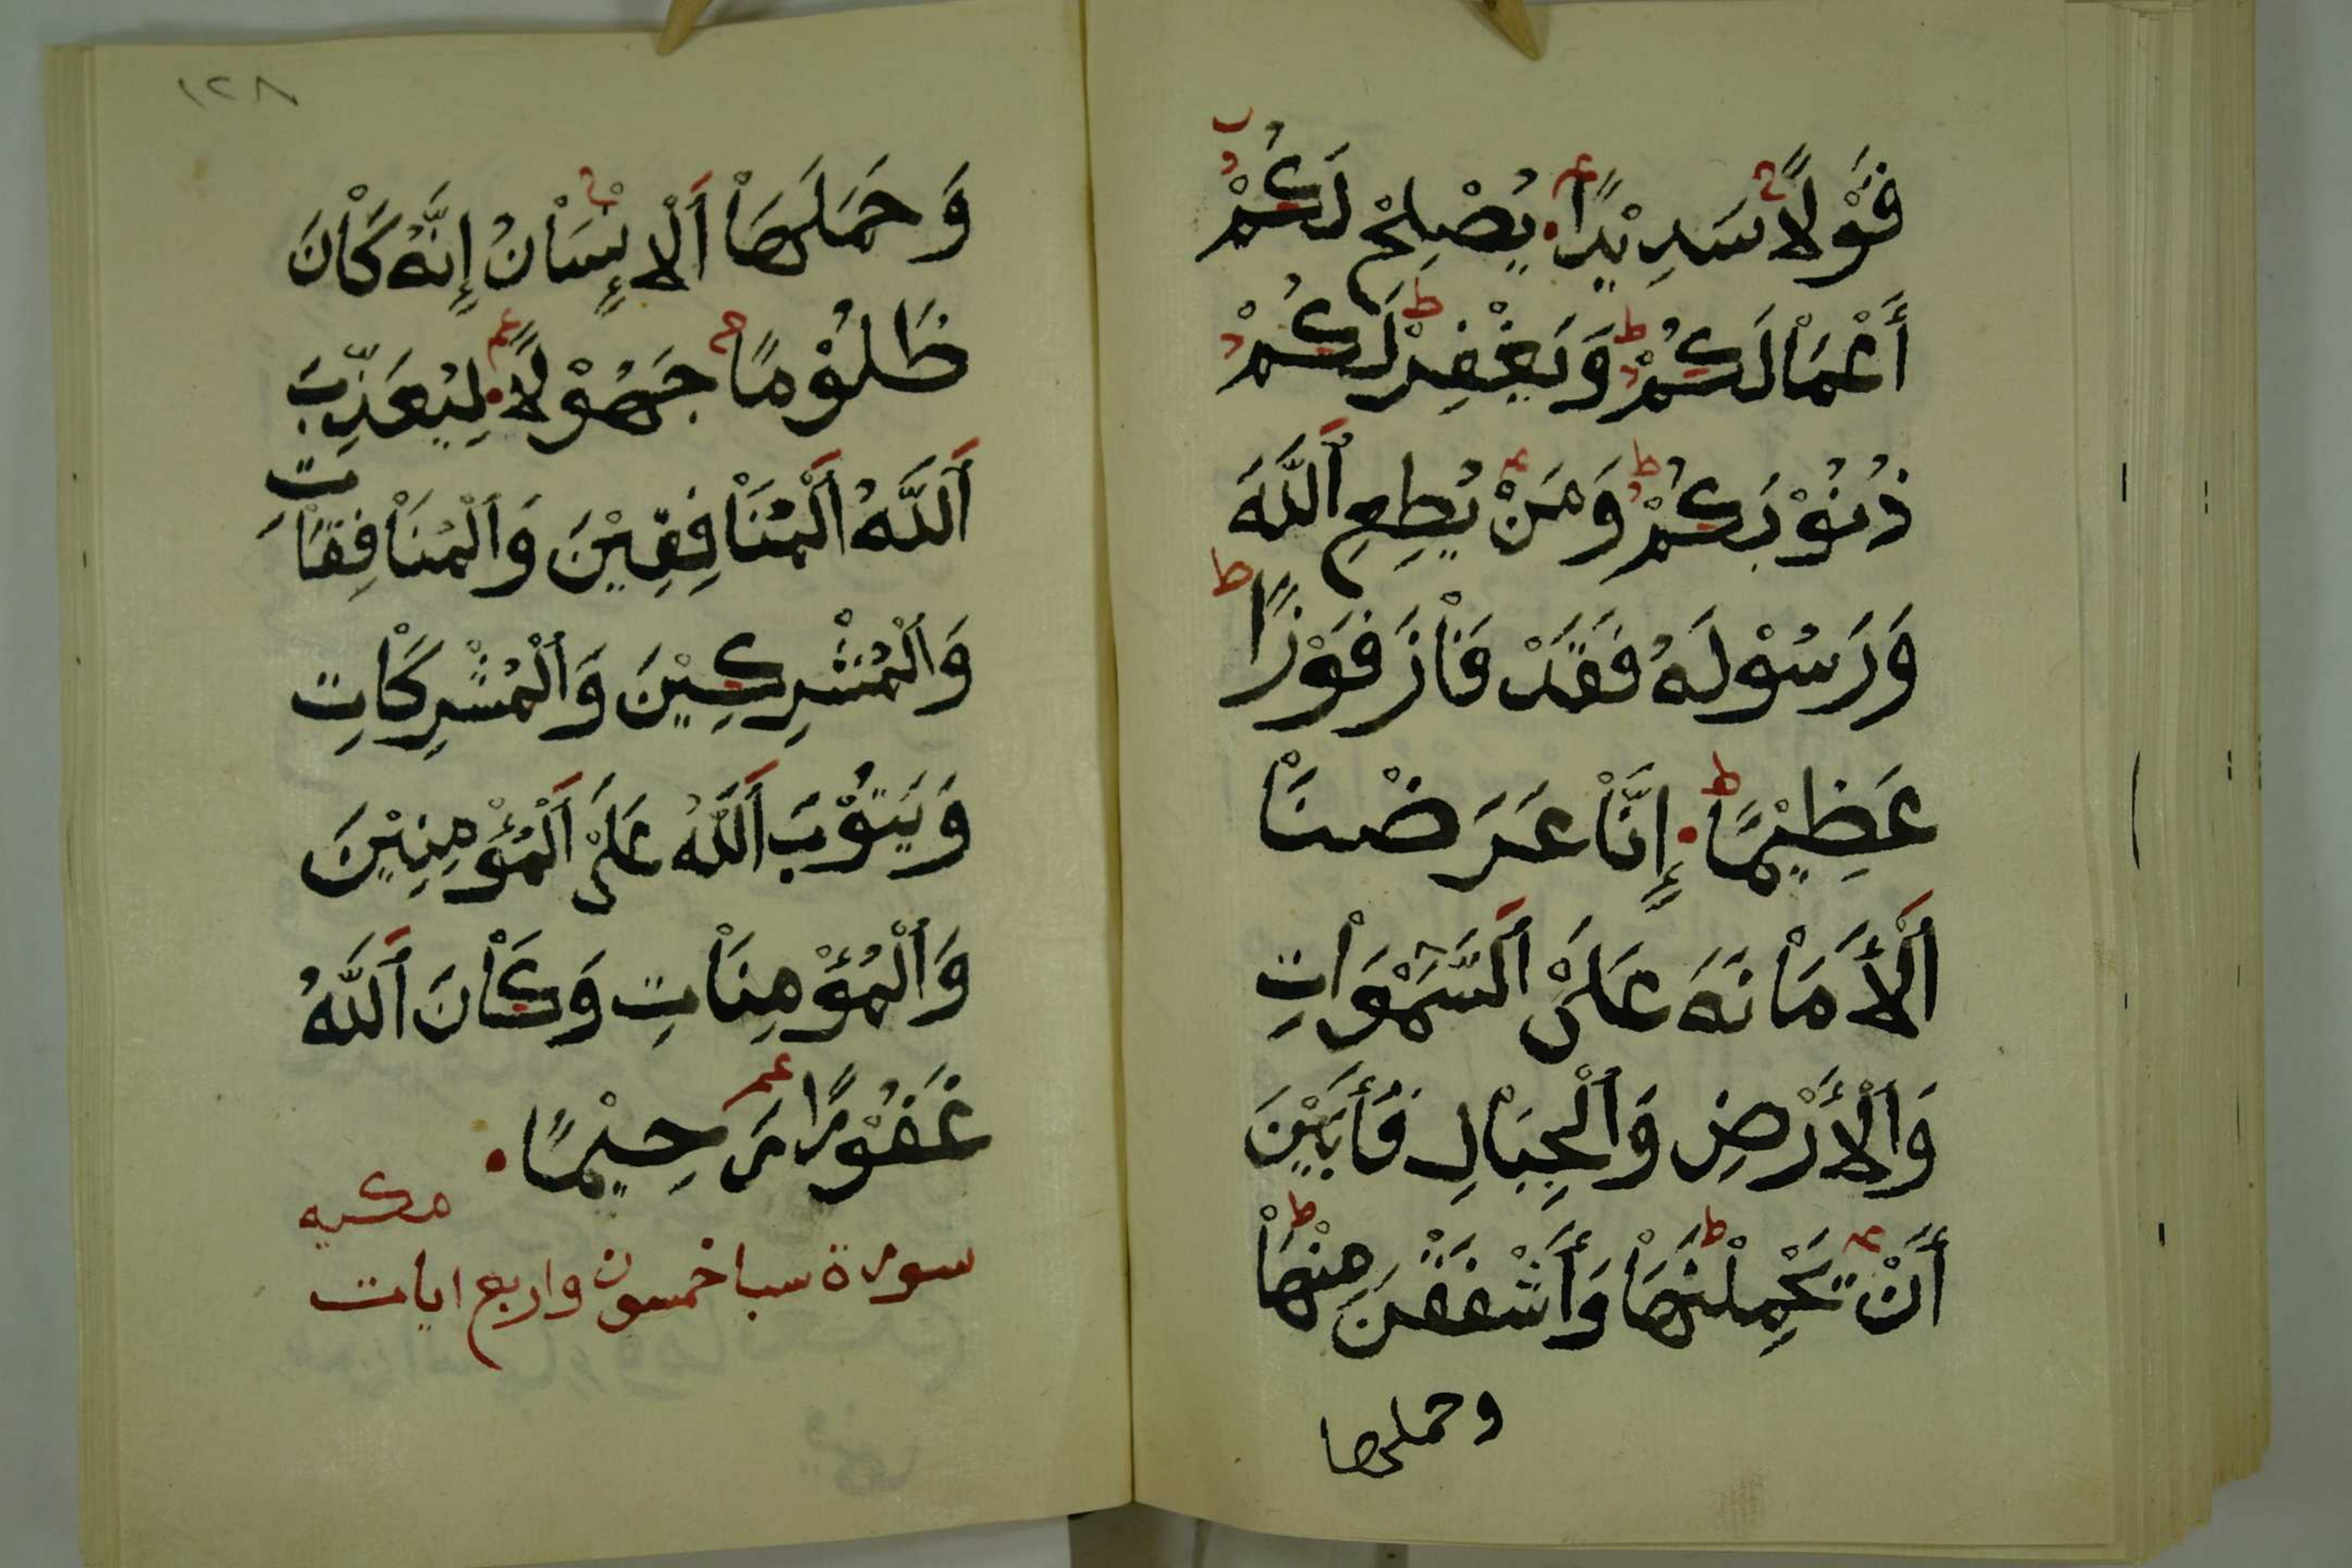 قَوْلًا سَدِيْدًا يُصْلِحْ لَكُمْ
أَعْمَالَكُمْ وَيَغْفِرْ لَكُمْ
ذُنُوْبَكُمْ وَمَنْ يُطِعِ اَللَّهَ
وَرَسُوْلَهُ فَقَدْ فَاْزَ فَوْزًا
عَظِيْمًا إِنَّاْ عَرَضْنَاْ
اَلْأَمَاْنَةَ عَلَىْ اَلسَّمْوَاْتِ
وَاَلْأَرْضِ وَاَلْجِبَاْلِ فَأَبَيْنَ
أَنْ يَحْمِلْنَهَاْ وَأَشْفَقْنَ مِنْهَاْ
وحملها
١٢٨
وَحَمَلَهَاْ اَلْإِنْسَاْنُ إِنَّهُ كَاْنَ
ظَلُوْمًا جَهُوْلًا لِيُعَذِّبَ
اَللَّهُ اَلْمُنَاْفِقِيْنَ وَاَلْمُنَاْفِقَاْتِ
وَاَلْمُشْرِكِيْنَ وَاَلْمُشْرِكَاْتِ
وَيَتُوْبَ اَللَّهُ عَلَىْ اَلْمُؤْمِنِيْنَ
وَاَلْمُؤْمِنَاْتِ وَكَاْنَ اَللَّهُ
غَفُوْرًا رَحِيْمًا
مكيه
سورة سبا خمسون واربع ايات